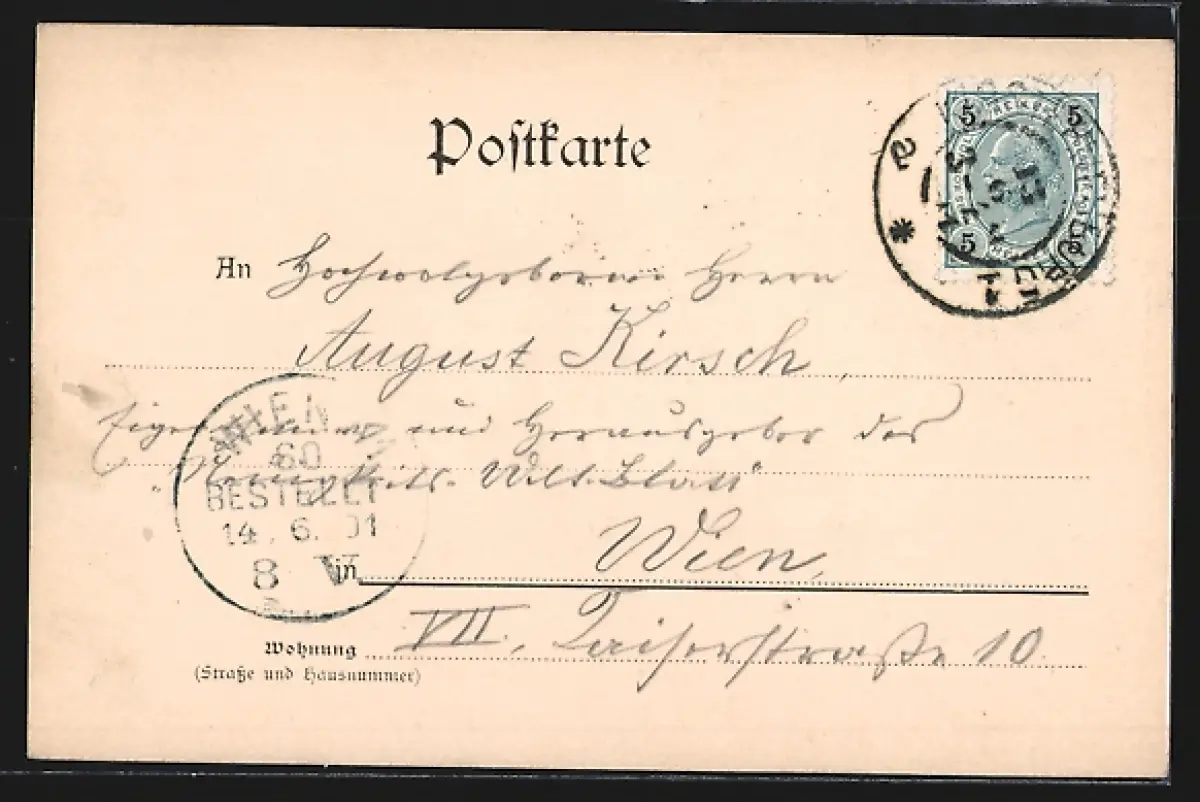 Postkarte
5 5
5 5
An Hochwolgeboren Herrn
August Kirsch,
und Herausgeber des
Welt-Blatt"
WIEN
60
BESTELLT
14. 6. 01
8 V
in Wien,
Wohnung VII. Kaiserstraße 10.
(Straße und Hausnummer)